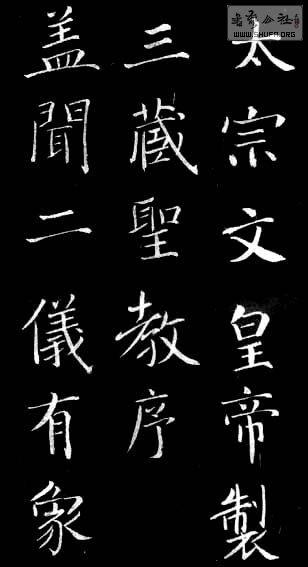 太宗文皇帝製
三藏聖教序
盖聞二儀有象
WWW.SHUFA.ORG